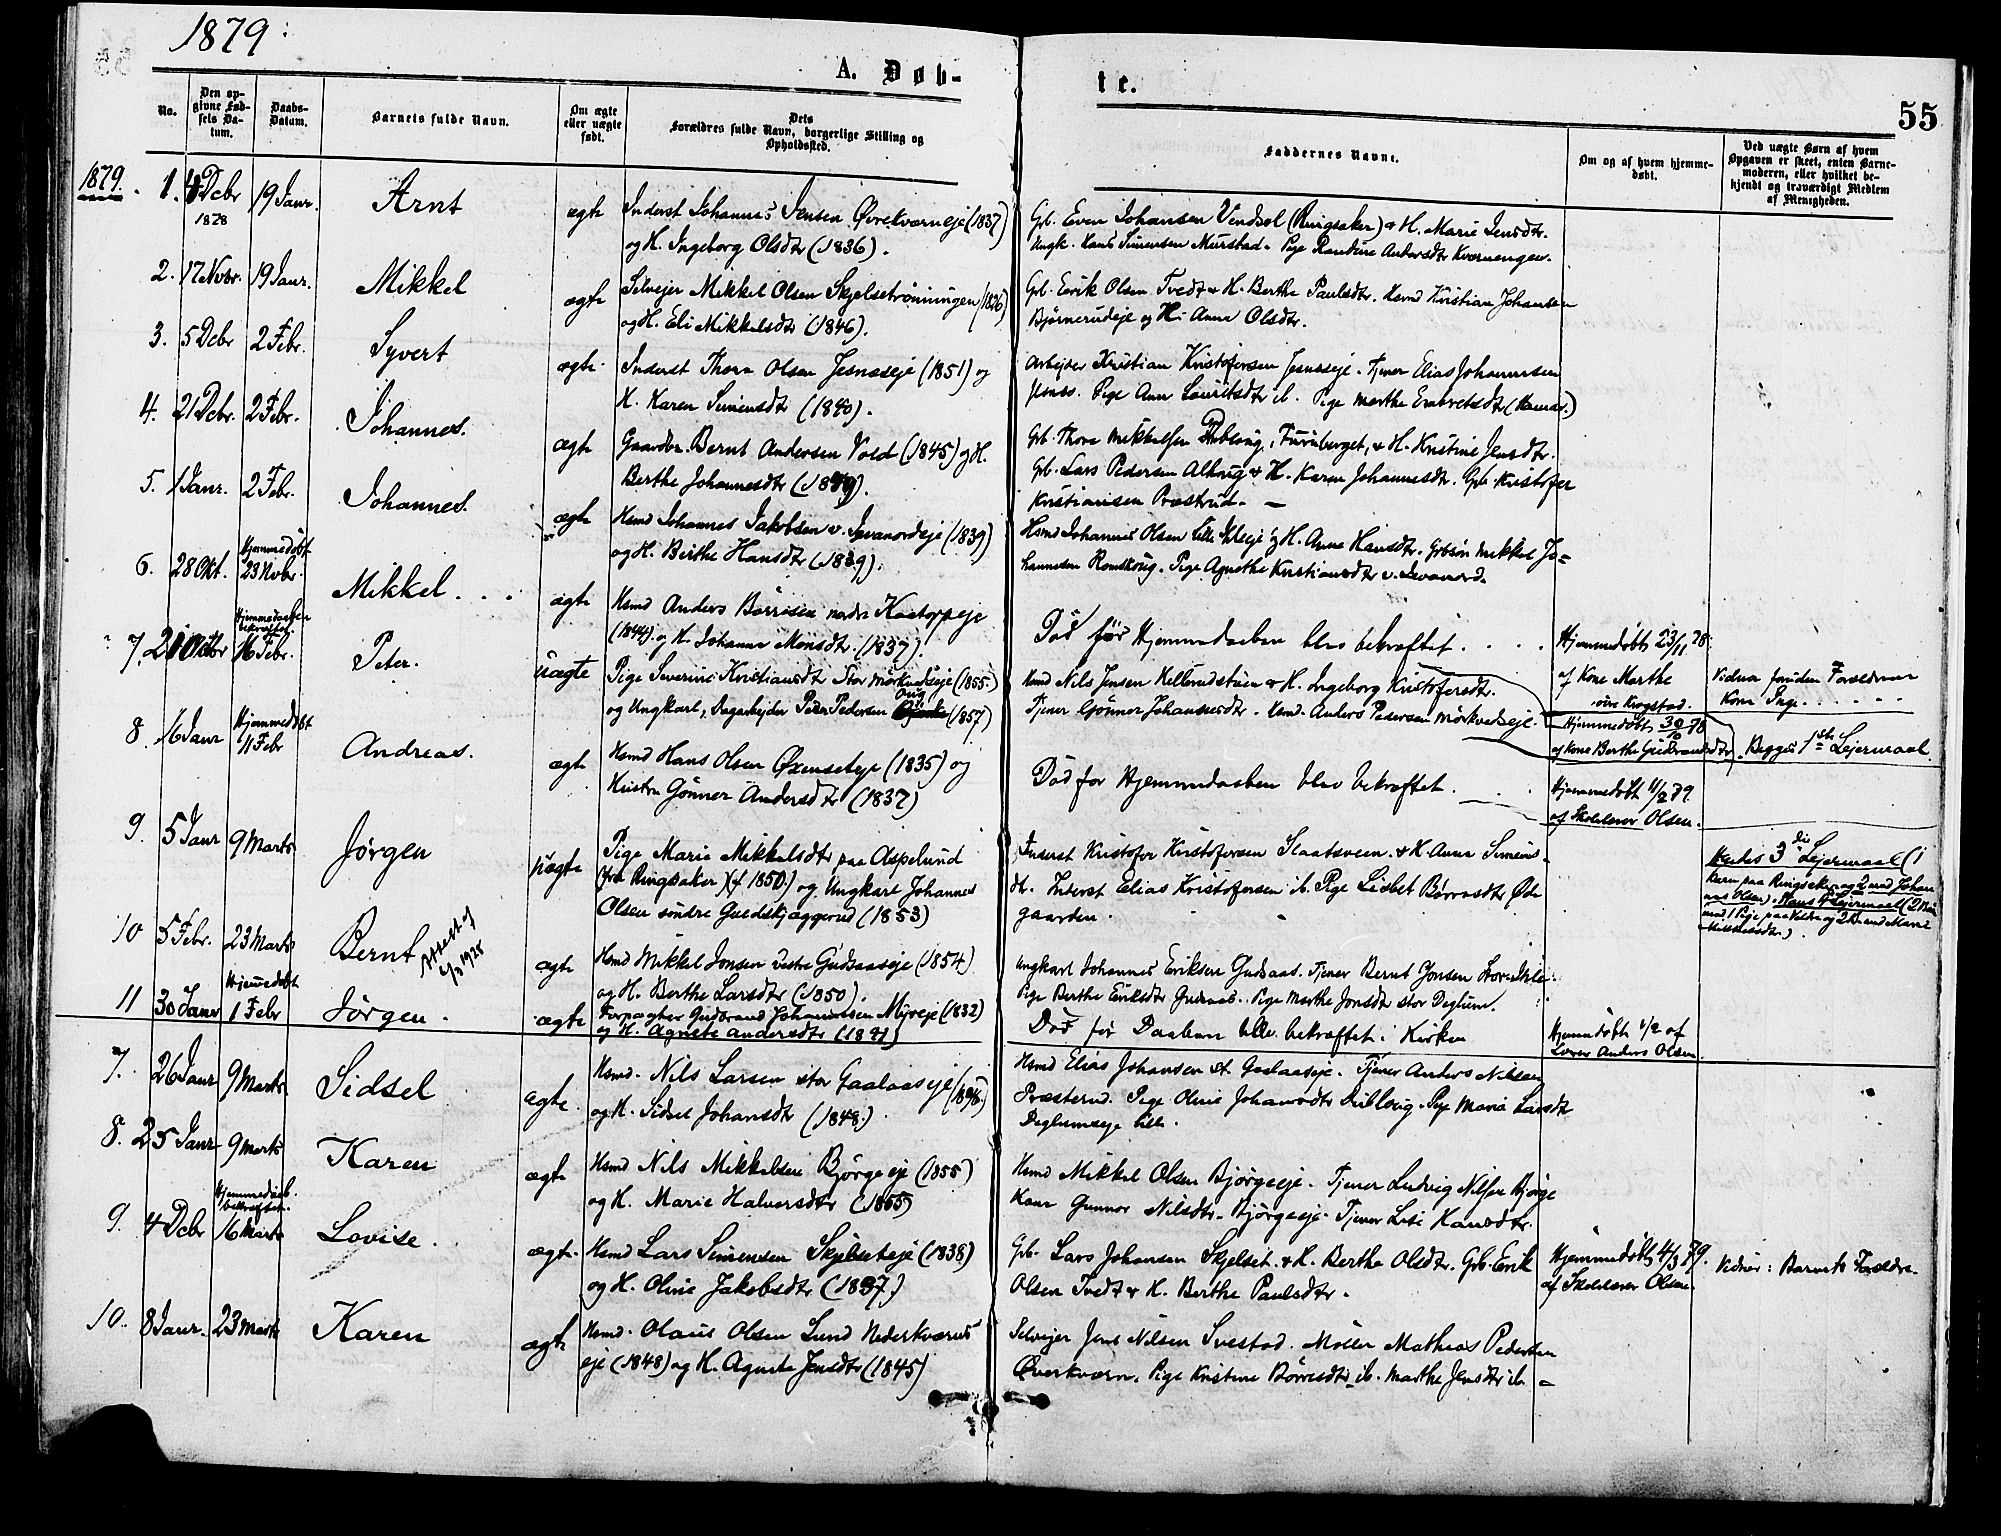 1879.
A. Døb-
te.
55
No.
Den op-
givne Fød-
sels Da-
tum.
Daabs-
Datum.
Barnets fulde Navn.
Om ægte
eller uægte
født.
Dets
Forældres fulde Navn, borgerlige Stilling og
Opholdssted.
Faddernes Navne.
Om og af hvem hjemme-
døbt.
Ved uægte Børn af hvem
Opgaven er skeet, enten Barne-
moderen, eller hvilket be-
kjendt og troværdigt Medlem
af Menigheden.
1879.
1. 4 Decbr 1878 19 Janr. Arnt ægte
Inderst Johannes Jensen Øvrekværneje (1837)
og H. Ingeborg Olsdtr (1836).
Gb. Even Johansen Vendsol (Ringsaker) & H. Marie Jensdtr.
Ungk. Hans Simensen Murstad. Pige Randine Andersdtr Kværnengen.
2. 17 Novbr. 19 Janr. Mikkel ægte
Selvejer Mikkel Olsen Skjelsetrønningen (1826)
og H. Eli Mikkelsdtr (1846).
Gb. Erik Olsen Tvedt & H. Berthe Paulsdtr. Hsmd Kristian Johansen
Bjørnerudeje og H. Anne Olsdtr.
3. 5 Decbr 2 Febr. Syvert ægte
Inderst Thorn Olsen Jesnæseje (1851) og
H. Karen Simensdtr (1840).
Arbejder Kristian Kristofersen Jesnæseje. Tjener Elias Johannesen
Jesnæs. Pige Ann Lauritsdtr ib. Pige Marthe Embretsdtr (Hamar.)
4. 21 Decbr. 2 Febr. Johannes. ægte
Gaardbr. Bernt Andersen Vold (1845) og H.
Berthe Johannesdtr (1849).
Gb. Thore Mikkelsen Furuberget, & H. Kristine Jensdtr.
Gb. Lars Pedersen Alhaug & H. Karen Johannesdtr. Gb. Kristofer
Kristiansen Præstrud. —
5. 1 Janr. 2 Febr. Johannes. ægte
Hsmd Johannes Jakobsen v. Sævanordeje (1839)
og H. Birthe Hansdtr (1839).
Hsmd Johannes Olsen Lille Ihleeje & H. Anne Hansdtr. Gbsøn Mikkel Jo-
hannesen Romskoug. Pige Agnethe Kristiansdtr v. Sævanord.
6. 28 Okt. Hjemmedøbt 23 Novbr. Mikkel . . . ægte
Hsmd Anders Børresen nedre Kostoppeje
(1844) og H. Johanne Monsdtr. (1837).
Død før Hjemmedaaben blev bekræftet . . . .
Hjemmedøbt 23/11 78.
af Kone Marthe
øvre Krogstad.
7. Hjemmedaaben bekræftet. 16 Febr. Peter. uægte
Pige Severine Kristiansdtr Stor Mørkvedseje (1855)
og Ungkarl, Dagarbejder Peder Pedersen (1857)
Hsmd Nils Jensen Hellerudstuen & H. Ingeborg Kristofersdtr.
Tjener Gønner Johannesdtr. Hsmd. Anders Pedersen Mørkvedseje.
Hjemmedøbt 30/10 78
af Kone Berthe Gulbrandsdtr
Vidner foruden Forældrene
Kone Inge . . . . .
Begges 1ste Lejermaal.
8. 16 Janr Hjemmedøbt 11 Febr Andreas. ægte
Hsmd Hans Olsen Øxenseteje (1835) og
Hustru Gønner Andersdtr (1837)
Død før Hjemmedaaben blev bekræftet . . .
Hjemmedøbt 11/2 79.
af Skolelærer Olsen.
9. 5 Janr 9 Marts Jørgen uægte
Pige Marie Mikkelsdtr paa Aspelund
(fra Ringsaker) (f 1850.) og Ungkarl Johannes
Olsen søndre Gredskjæggerud (1853)
Inderst Kristofer Kristofersen Slaatsveen & H. Anne Simens-
dt. Inderst Elias Kristofersen ib. Pige Lisbet Børresdtr Øde-
gaarden.
Hendes 3die Lejermaal (1
Barn paa Ringsaker og 2 med Johan-
nes Olsen). Hans 4 Lejermaal (2 Børn
med 1 Pige paa og 2 Børn med Marie
Mikkelsdtr).
10 5 Febr. 23 Marts Bernt ægte
Attest 1928
Hsmd Mikkel Jonsen Vestre Gudsaaseje (1854)
og H. Berthe Larsdtr (1850).
Ungkarl Johannes Eriksen Gudsaas. Tjener Bernt Jonsen Store Ihle.
Pige Berthe Eriksdtr Gudsaas. Pige Marthe Jonsdtr stor Deglum.
11 30 Janr Hjemmedøbt 1 Febr Jørgen. ægte
Forpagter Gudbrand Johannessen Myreje (1832)
og H. Agnete Andersdtr (1841)
Død før Daaben blev bekræftet i Kirken
Hjemmedøbt 1/2 af
Lærer Anders Olsen
7. 26 Janr 9 Marts Sidsel ægte
Hsmd. Nils Larsen stor Gaalaaseje (1846.)
og H. Sidsel Johansdtr (1848.)
Hsmd Elias Johansen st. Gaalaaseje. Tjener Anders Nilsen
Præsterud. Pige Oline Johansdtr Dubloug. Pige Maria Larsdt
Deglumseje lille.
8. 25 Janr 9 Marts Karen ægte
Hsmd Nils Mikkelsen Bjørgeeje (1855)
og H. Marie Halversdtr (1855)
Hsmd Mikkel Olsen Bjørgeeje. Tjener Ludvig Nilsen Bjørge
Kone Gunnor Nilsdtr. Bjørgeeje. Tjener Lisi Hansdtr.
9. 4 Decbr Hjemmedaab. bekræftet. 16 Marts Lovise. ægte
Hsmd Lars Simensen Skjelseteje (1838)
og H. Oline Jakobsdtr (1837.)
Gb. Lars Johansen Skjelset & H. Berthe Olsdtr. Gb. Erik
Olsen Tvedt & H. Berthe Paulsdtr.
Hjemmedøbt 4/3 79.
af Skolelærer Olsen.
Vidner: Barnets Forældre.
10. 8 Janr. 23 Marts Karen ægte
Hsmd. Olaus Olsen Lund Nederkværns
eje (1848) og H. Agnete Jensdtr (1845)
Selvejer Jens Nilsen Svestad. Møller Mathias Pedersen
Øverkværn. Pige Kristine Børresdtr ib. Marthe Jensdtr ib. —